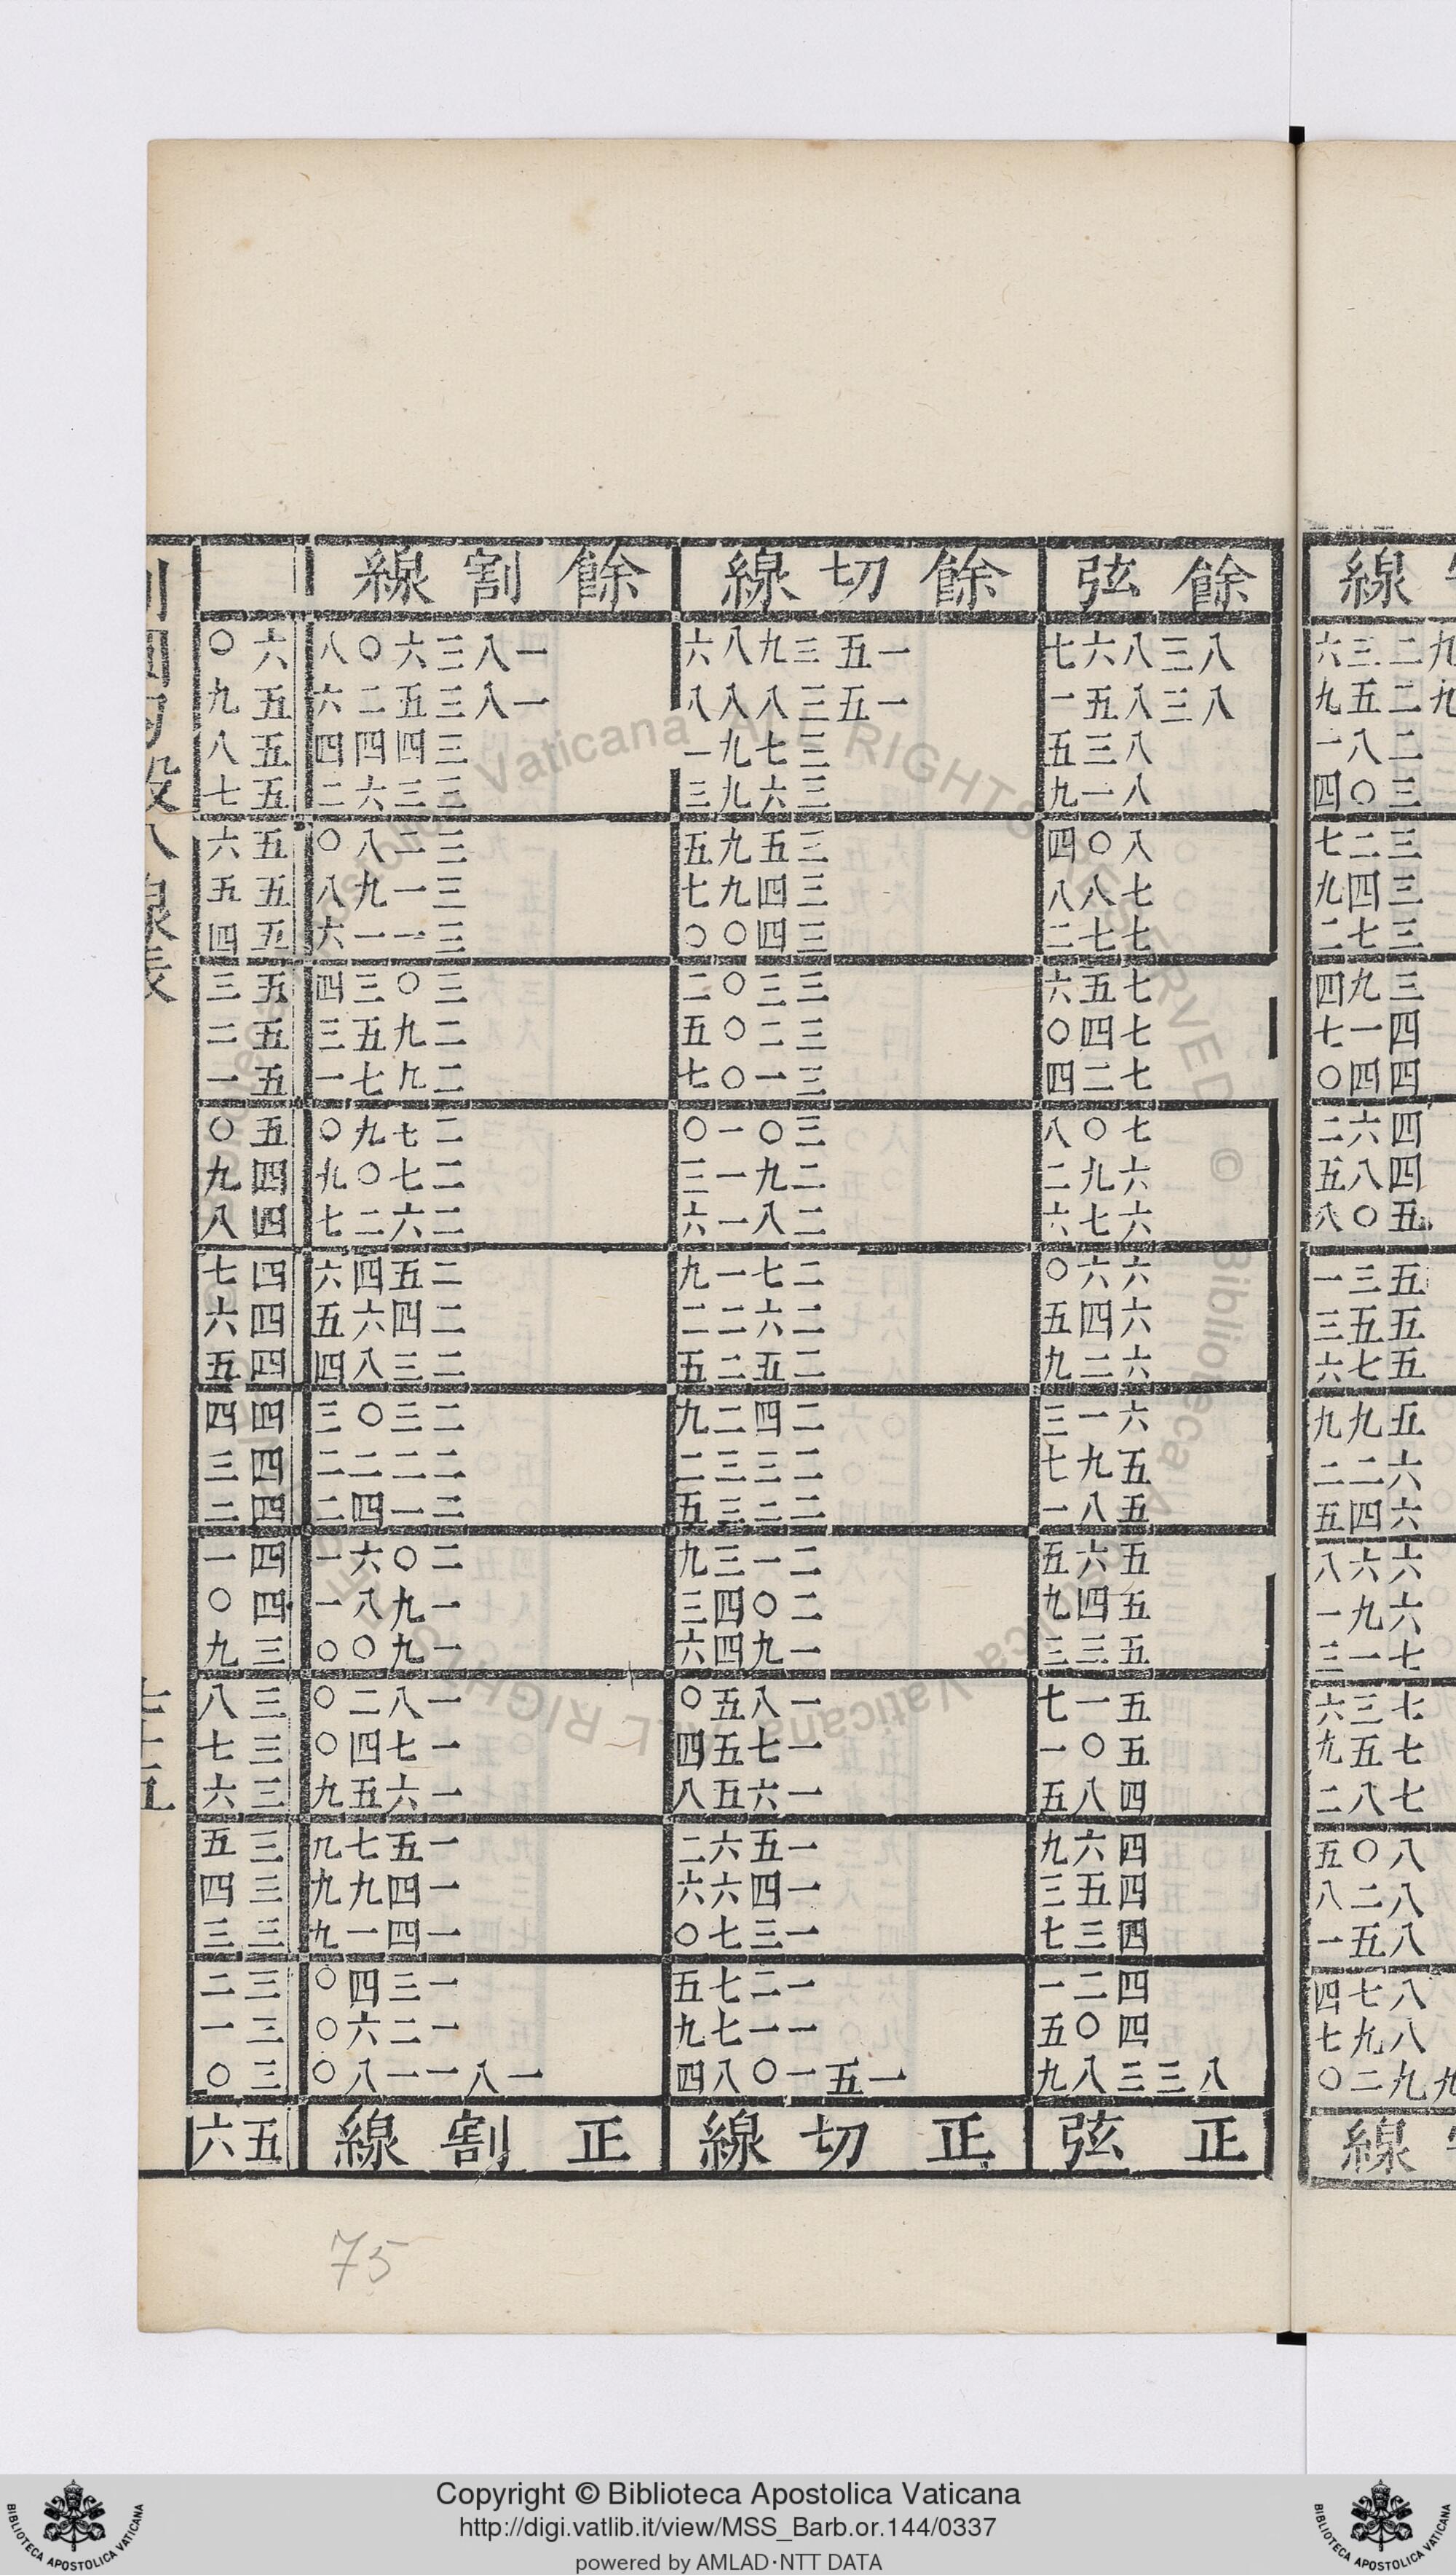 線
九二三六
九二五九
二八一
三〇四
三二七
三四九
三七二
三九四
四一七
四四〇
四六二
四八五
五〇八
五三一
五五三
五七六
五九九
六二二
六四五
六六八
六九一
七一三
七三六
七五九
七八二
八〇五
八二八
八五一
八七四
八九七
九九二〇
線
餘弦 餘切線 餘割線
八三八六七 一五三九八六 一八三六〇八 六〇
八三八五一 一五三八八八 一八三五二六 五九
八三五 三七九一 三四四四 五八
八一九 三六九三 三三六二 五七
八〇四 三五九五 三二八〇 五六
七八八 三四九七 三一九八 五五
七七二 三四〇〇 三一一六 五四
七五六 三三〇二 三〇三四 五三
七四〇 三二〇五 二九五三 五二
七二四 三一〇七 二九七一 五一
七〇八 三〇一〇 二七九〇 五〇
六九二 二九一三 二七〇九 四九
六七六 二八一六 二六二七 四八
六六〇 二七一九 二五四六 四七
六四五 二六二二 二四六五 四六
六二九 二五二五 二三八四 四五
六一三 二四二九 二三〇三 四四
五九七 二三三二 二二二二 四三
五八一 二二三五 二一四二 四二
五六五 二一三九 二〇六一 四一
五四九 二〇四三 一九八一 四〇
五三三 一九四六 一九〇〇 三九
五一七 一八五〇 一八二〇 三八
五〇一 一七五四 一七四〇 三七
四八五 一六五八 一六五九 三六
四六九 一五六二 一五七九 三五
四五三 一四六六 一四九九 三四
四三七 一三七〇 一四一九 三三
四二一 一二七五 一三四〇 三二
四〇五 一一七九 一二六〇 三一
八三三八九 一五一〇八四 一八一一八〇 三〇
正弦 正切線 正割線 五六
75
Copyright © Biblioteca Apostolica Vaticana
http://digi.vatlib.it/view/MSS_Barb.or.144/0337
powered by AMLAD·NTT DATA
BIBLIOTECA APOSTOLICA VATICANA
BIBLIOTECA APOSTOLICA VATICANA